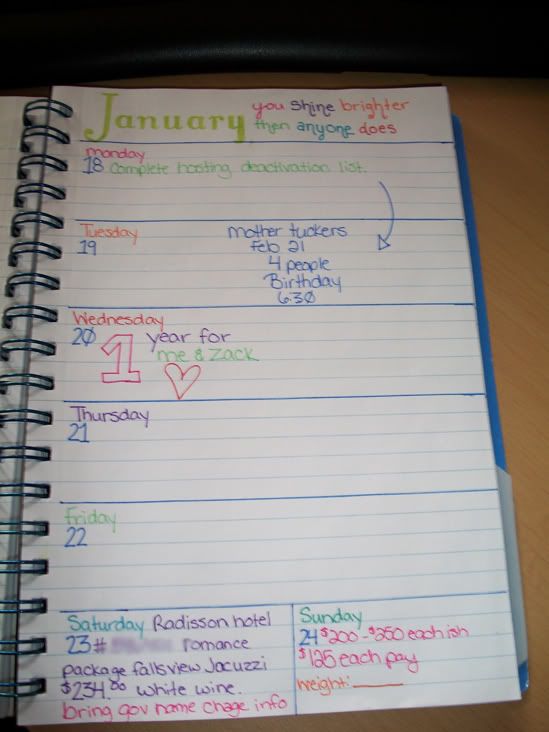 January you shine brighter
then anyone does
monday
18 complete hosting deactivation list.
Tuesday
19
mother tuckers
feb 21
4 people
Birthday
6:30
Wednesday
20 1 year for
me & zack
Thursday
21
friday
22
Saturday Radisson hotel
23 # romance
package fallsview Jacuzzi
$234.00 white wine.
bring gov name chage info
Sunday
24 $200-$250 each ish
$125 each pay
weight: